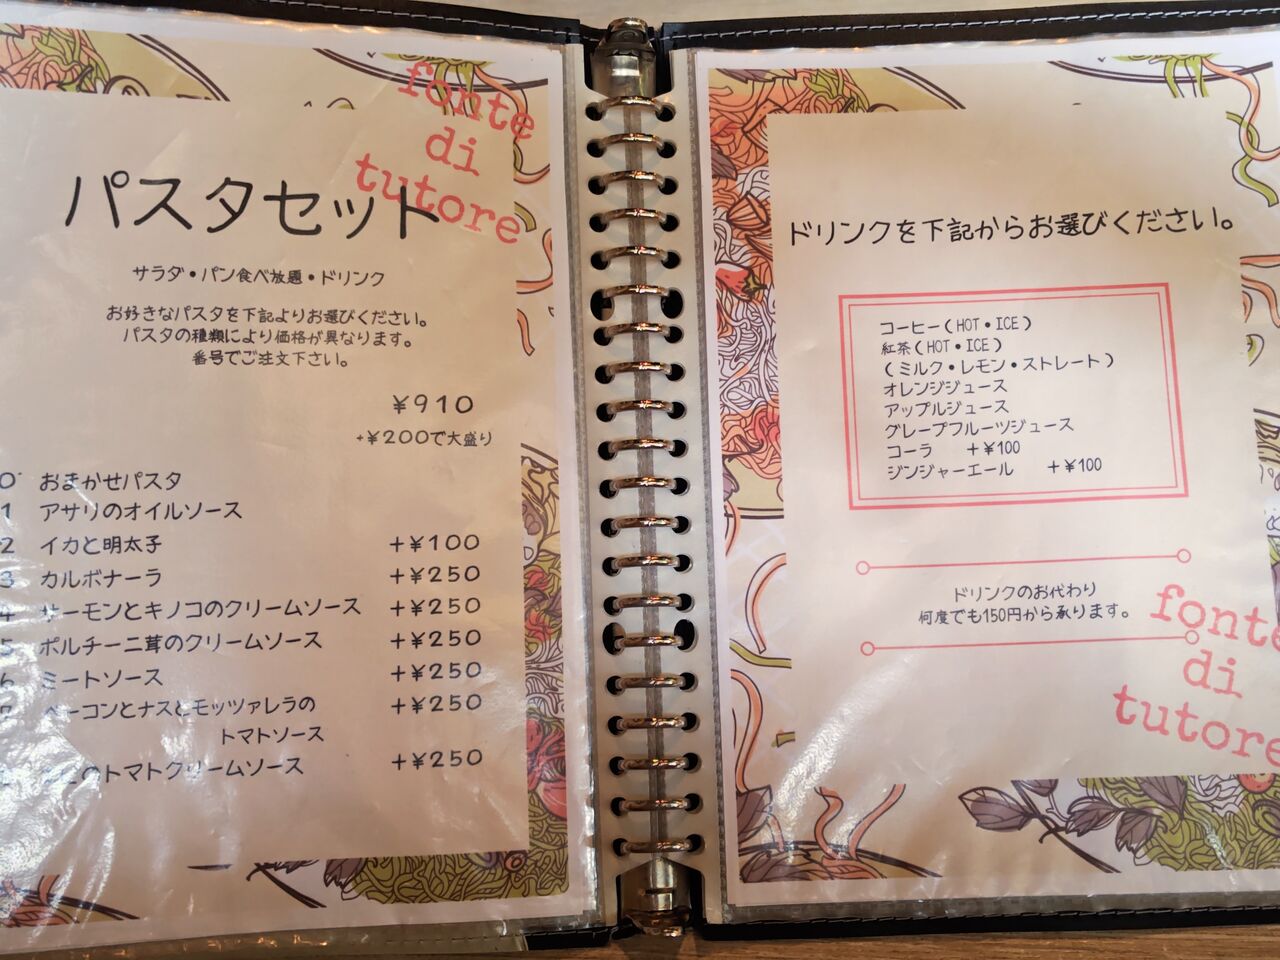 fonte
di
tutore
パスタセット
サラダ・パン食べ放題・ドリンク
お好きなパスタを下記よりお選びください。
パスタの種類により価格が異なります。
番号でご注文下さい。
¥910
+¥200で大盛り
0 おまかせパスタ
1 アサリのオイルソース
2 イカと明太子 +¥100
3 カルボナーラ +¥250
4 サーモンとキノコのクリームソース +¥250
5 ポルチーニ茸のクリームソース +¥250
6 ミートソース +¥250
ベーコンとナスとモッツァレラの +¥250
トマトソース
のトマトクリームソース +¥250
ドリンクを下記からお選びください。
コーヒー(HOT・ICE)
紅茶(HOT・ICE)
(ミルク・レモン・ストレート)
オレンジジュース
アップルジュース
グレープフルーツジュース
コーラ +¥100
ジンジャーエール +¥100
ドリンクのお代わり
何度でも150円から承ります。
fonte
di
tutore